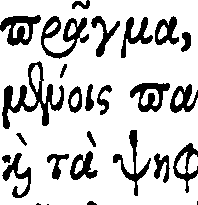 ϖρᾶγμα,
μεθύοις ϖα
ϗ̀ τὰ ψηφ